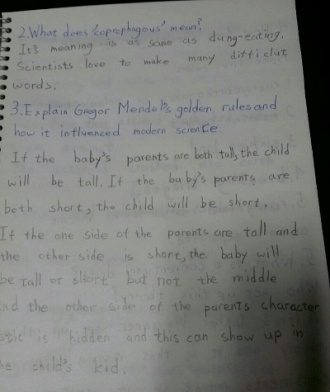 2. What does 'coprophagous' mean?
It's meaning is as same as dung-eating.
Scientists love to make many difficlut
words.
3. Explain Gregor Mendel's golden rules and
how it influenced modern science.
If the baby's parents are both tall, the child
will be tall. If the baby's parents are
both short, the child will be short.
If the one side of the parents are tall and
the other side is short, the baby will
be tall or short but not the middle
and the other side of the parents character
istic is hidden and this can show up in
the child's kid.